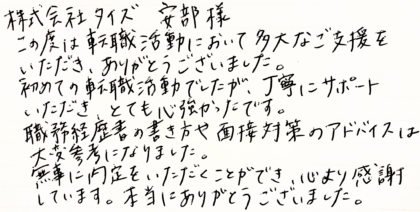 株式会社タイズ 安部様
この度は転職活動において多大なご支援を
いただき、ありがとうございました。
初めての転職活動でしたが、丁寧にサポート
いただき、とても心強かったです。
職務経歴書の書き方や面接対策のアドバイスは
大変参考になりました。
無事に内定をいただくことができ、心より感謝
しています。本当にありがとうございました。